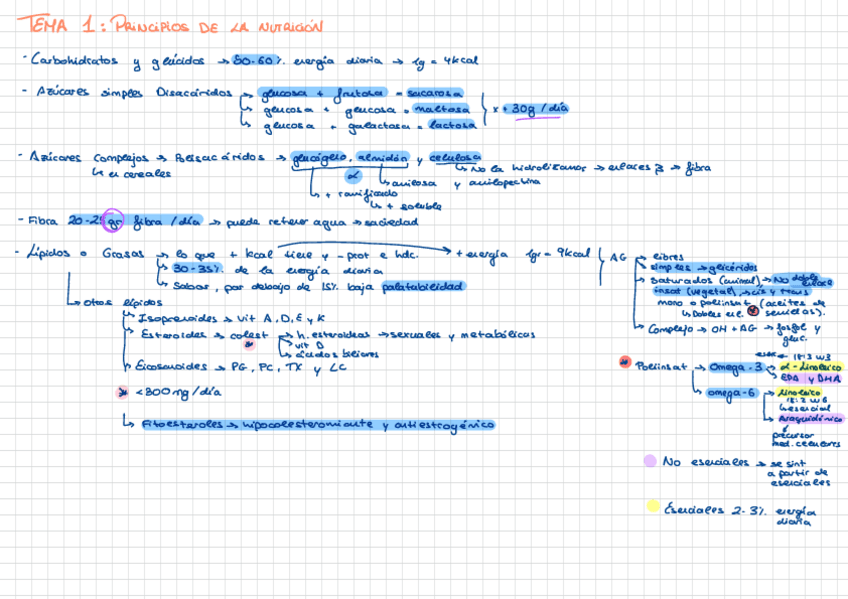 TEMA 1: PRINCIPIOS DE LA NUTRICIÓN
- Carbohidratos y glúcidos → 50-60% energía diaria → 1g = 4kcal
- Azúcares simples Disacáridos → glucosa + frutosa = sacarosa
↳ glucosa + glucosa = maltosa
↳ glucosa + galactosa = lactosa
x + 30g / día
- Azúcares Complejos → Polisacáridos → glucógeno, almidón y celulosa
↳ en cereales
↳ No la hidrolizamos → enlaces β → fibra
α
↳ amilosa y amilopectina
↳ + ramificado
↳ + soluble
- Fibra 20-25 gr fibra / día → puede retener agua → saciedad
- Lípidos o Grasas → lo que + kcal tiene y - prot e hdc. → + energía 1gr = 9kcal
↳ 30-35% de la energía diaria
↳ Sabor, por debajo de 15% baja palatabilidad
AG → libres
simples → glicéridos
Saturados (animal) → No doble enlace
insat (vegetal) → cis y trans
mono o poliinsat (aceites de semillas).
↳ Dobles enl.
↳ Complejo → OH + AG → fosfol y gluc.
↳ Otros lípidos
↳ Isoprenoides → vit A, D, E y K
↳ Esteroides → colest → h. esteroideas → sexuales y metabólicas
↳ vit D
↳ ácidos biliares
↳ Eicosanoides → PG, PC, TX y LC
* < 300 mg / día
↳ Fitoesteroles → hipocolesteromiante y antiestrogénico
* Poliinsat → Omega - 3 → α - Linoleico
18:3 w3
↳ EPA y DHA
↳ omega-6 → Linoleico
18:2 w6
↳ esencial
↳ Araquidónico
↓
precursor
med. celulares
No esenciales → se sint
a partir de
esenciales
Esenciales 2-3% energía
diaria